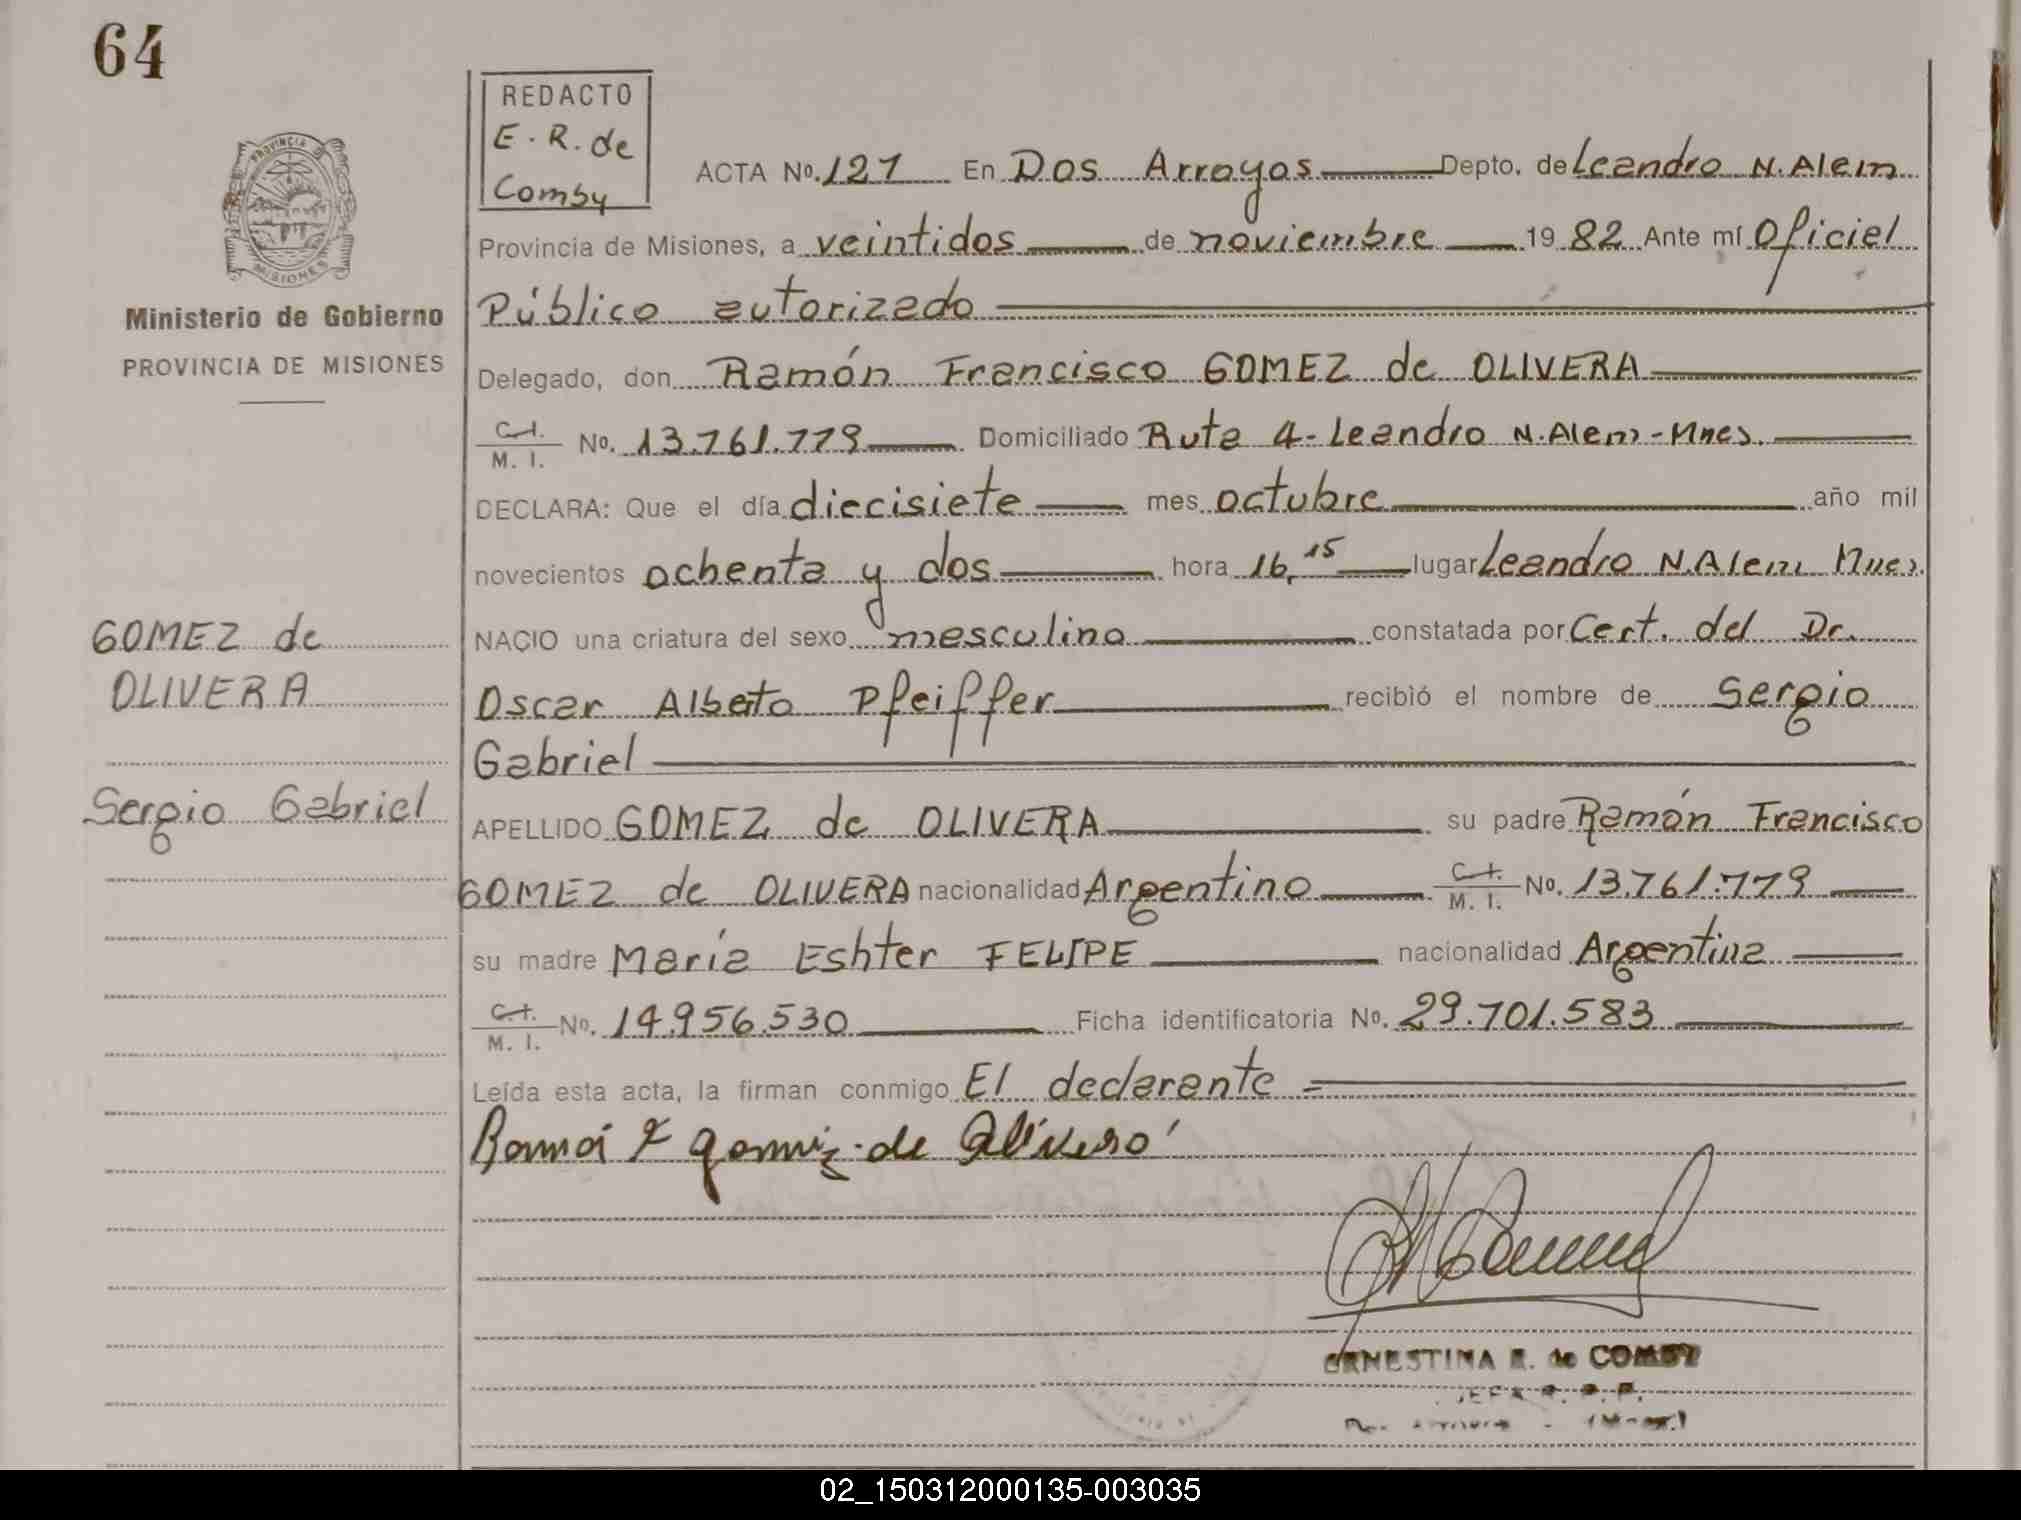 64
REDACTO
E. R. de
Comby
PROVINCIA D
MISIONES
Ministerio de Gobierno
PROVINCIA DE MISIONES
ACTA No. 121 En Dos Arroyos Depto. de Leandro N. Alem
Provincia de Misiones, a veintidos de noviembre 19 82 Ante mí Oficial
Público autorizado
Delegado, don Ramón Francisco GOMEZ de OLIVERA
C.I.
M. I. No. 13.761.779 Domiciliado Ruta 4 - Leandro N. Alem - Mnes.
DECLARA: Que el día diecisiete mes octubre año mil
novecientos ochenta y dos hora 16,15 lugar Leandro N. Alem Mnes.
NACIO una criatura del sexo masculino constatada por Cert. del Dr.
Oscar Alberto Pfeiffer recibió el nombre de Sergio
Gabriel
APELLIDO GOMEZ de OLIVERA su padre Ramón Francisco
GOMEZ de OLIVERA nacionalidad Argentino C.I. M. I. No. 13.761.779
su madre María Eshter FELIPE nacionalidad Argentina
C.I.
M. I. No. 14.956.530 Ficha identificatoria No. 29.701.583
Leída esta acta, la firman conmigo El declarante
GOMEZ de
OLIVERA
Sergio Gabriel
Ramón F Gomez de Olivera
ERNESTINA R. de COMBY
02_150312000135-003035